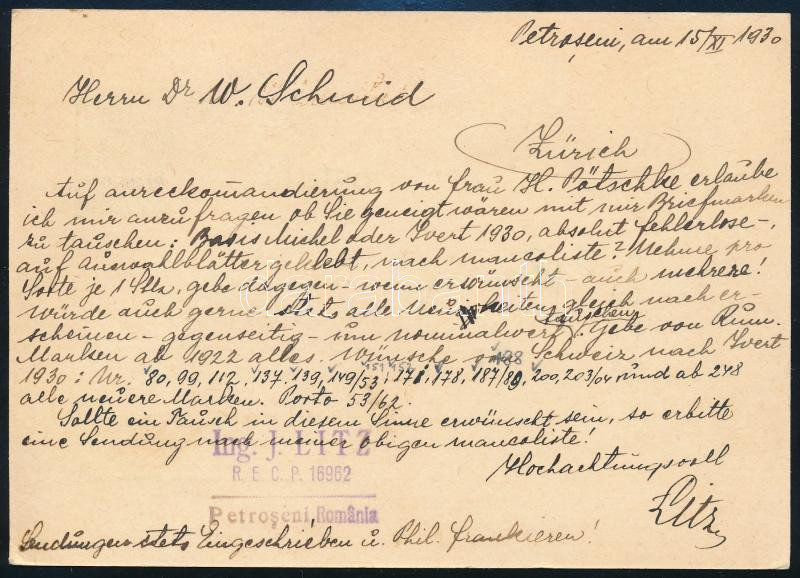 Petroşeni, am 15/XI 1930
Herrn Dr W. Schmid
Zürich
Auf anreckomandierung von Frau H. Pötschke erlaube
ich mir anzufragen ob Sie geneigt wären mit mir Briefmarken
zu tauschen: Basis Michel oder Yvert 1930, absolut fehlerlose,
auf Auswahlblätter geklebt, nach mancoliste? Nehme pro
Sorte je 1 Stk, gebe dagegen - wenn erwünscht - auch mehrere!
würde auch gerne stets alle Neuheiten gleich nach er-
scheinen - gegenseitig - um nominalwert tauschen: Gebe von Rum.
Marken ab 1922 alles. Wünsche Schweiz nach Yvert
1930: Nr. 80, 99, 112, 137, 139, 149/53, 171, 178, 187/89, 200, 203/04 und ab 248
alle neuere Marken. Porto 53/62.
Sollte ein Tausch in diesem Sinne erwünscht sein, so erbitte
eine Sendung nach meiner obigen mancoliste!
Hochachtungsvoll
Litz
Ing. J. LITZ
R. E. C. P. 16962
Petroşeni, România
Sendungen stets Eingeschrieben u. Phil. frankieren!
darabanth